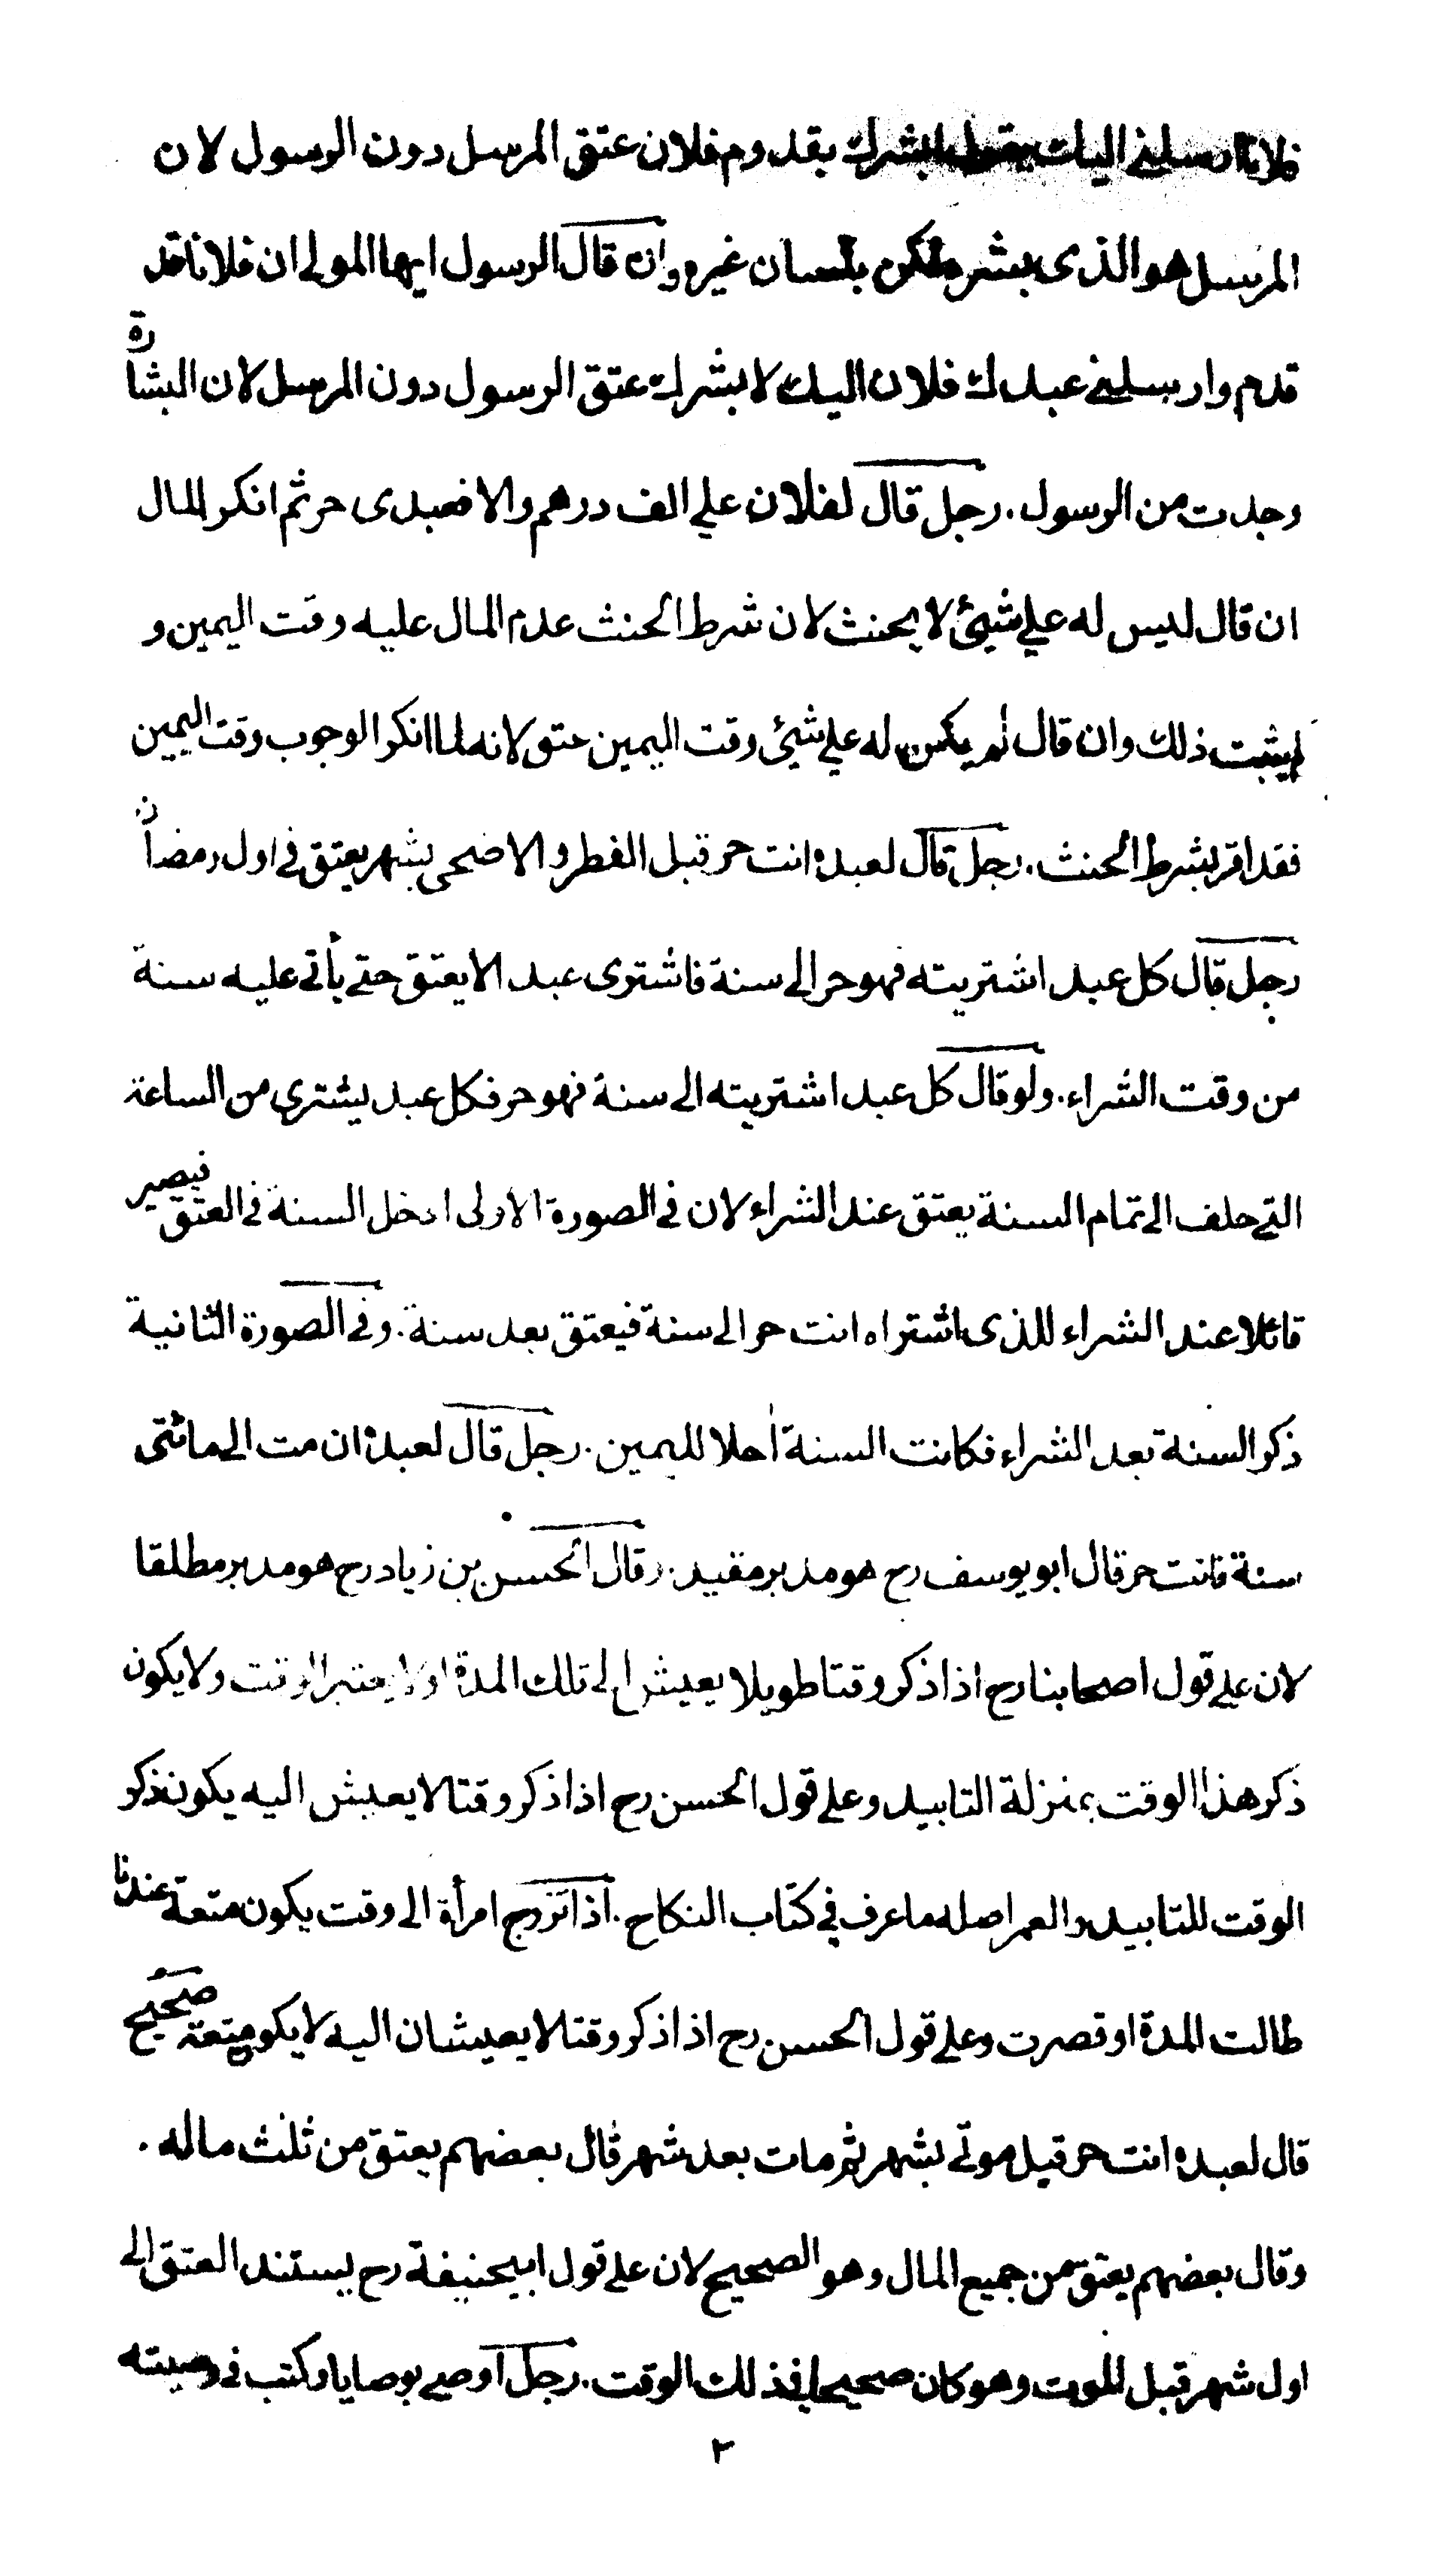 فلانا ارسلني اليك يقول ابشرك بقدوم فلان عتق المرسل دون الرسول لان
المرسل هو الذى بشره لكن بلسان غيره وان قال الرسول ايها المولى ان فلانا قد
قدم وارسلني عبدك فلان اليك لابشرك عتق الرسول دون المرسل لان البشارة
وجدت من الرسول . رجل قال لفلان علي الف درهم والا فعبدى حر ثم انكر المال
ان قال ليس له علي شيئ لا يحنث لان شرط الحنث عدم المال عليه وقت اليمين و
لم يثبت ذلك وان قال لم يكن له علي شيئ وقت اليمين عتق لانه لما انكر الوجوب وقت اليمين
فقد اقر بشرط الحنث . رجل قال لعبده انت حر قبل الفطر و الاضحى بشهر يعتق في اول رمضان
رجل قال كل عبد اشتريته فهو حر الى سنة فاشترى عبد الا يعتق حتى يأتي عليه سنة
من وقت الشراء . ولو قال كل عبد اشتريته الى سنة فهو حر فكل عبد يشتري من الساعة
التي حلف الى تمام السنة يعتق عند الشراء لان في الصورة الاولى ادخل السنة في العتق فيصير
قائلا عند الشراء للذى اشتراه انت حر الى سنة فيعتق بعد سنة . وفي الصورة الثانية
ذكر السنة بعد الشراء فكانت السنة اجلا لليمين . رجل قال لعبده ان مت الى مائتى
سنة فانت حر قال ابو يوسف رح هو مدبر مقيد . وقال الحسن بن زياد رح هو مدبر مطلقا
لان على قول اصحابنا رح اذا ذكر وقتا طويلا يعيش الى تلك المدة اولا يعتبر الوقت ولا يكون
ذكر هذا الوقت بمنزلة التابيد وعلى قول الحسن رح اذا ذكر وقتا لا يعيش اليه يكون ذكر
الوقت للتابيد والعمر اصله ما عرف في كتاب النكاح . اذا تزوج امرأة الى وقت يكون متعة عندنا
طالت المدة او قصرت وعلى قول الحسن رح اذا ذكر وقتا لا يعيشان اليه لا يكون متعة صحيح
قال لعبده انت حر قبل موتي بشهر ثم مات بعد شهر قال بعضهم يعتق من ثلث ماله .
وقال بعضهم يعتق من جميع المال وهو الصحيح لان على قول ابيحنيفة رح يستند العتق الى
اول شهر قبل الموت وهو كان صحيحا في ذلك الوقت . رجل اوصى بوصايا وكتب في وصيته
٢